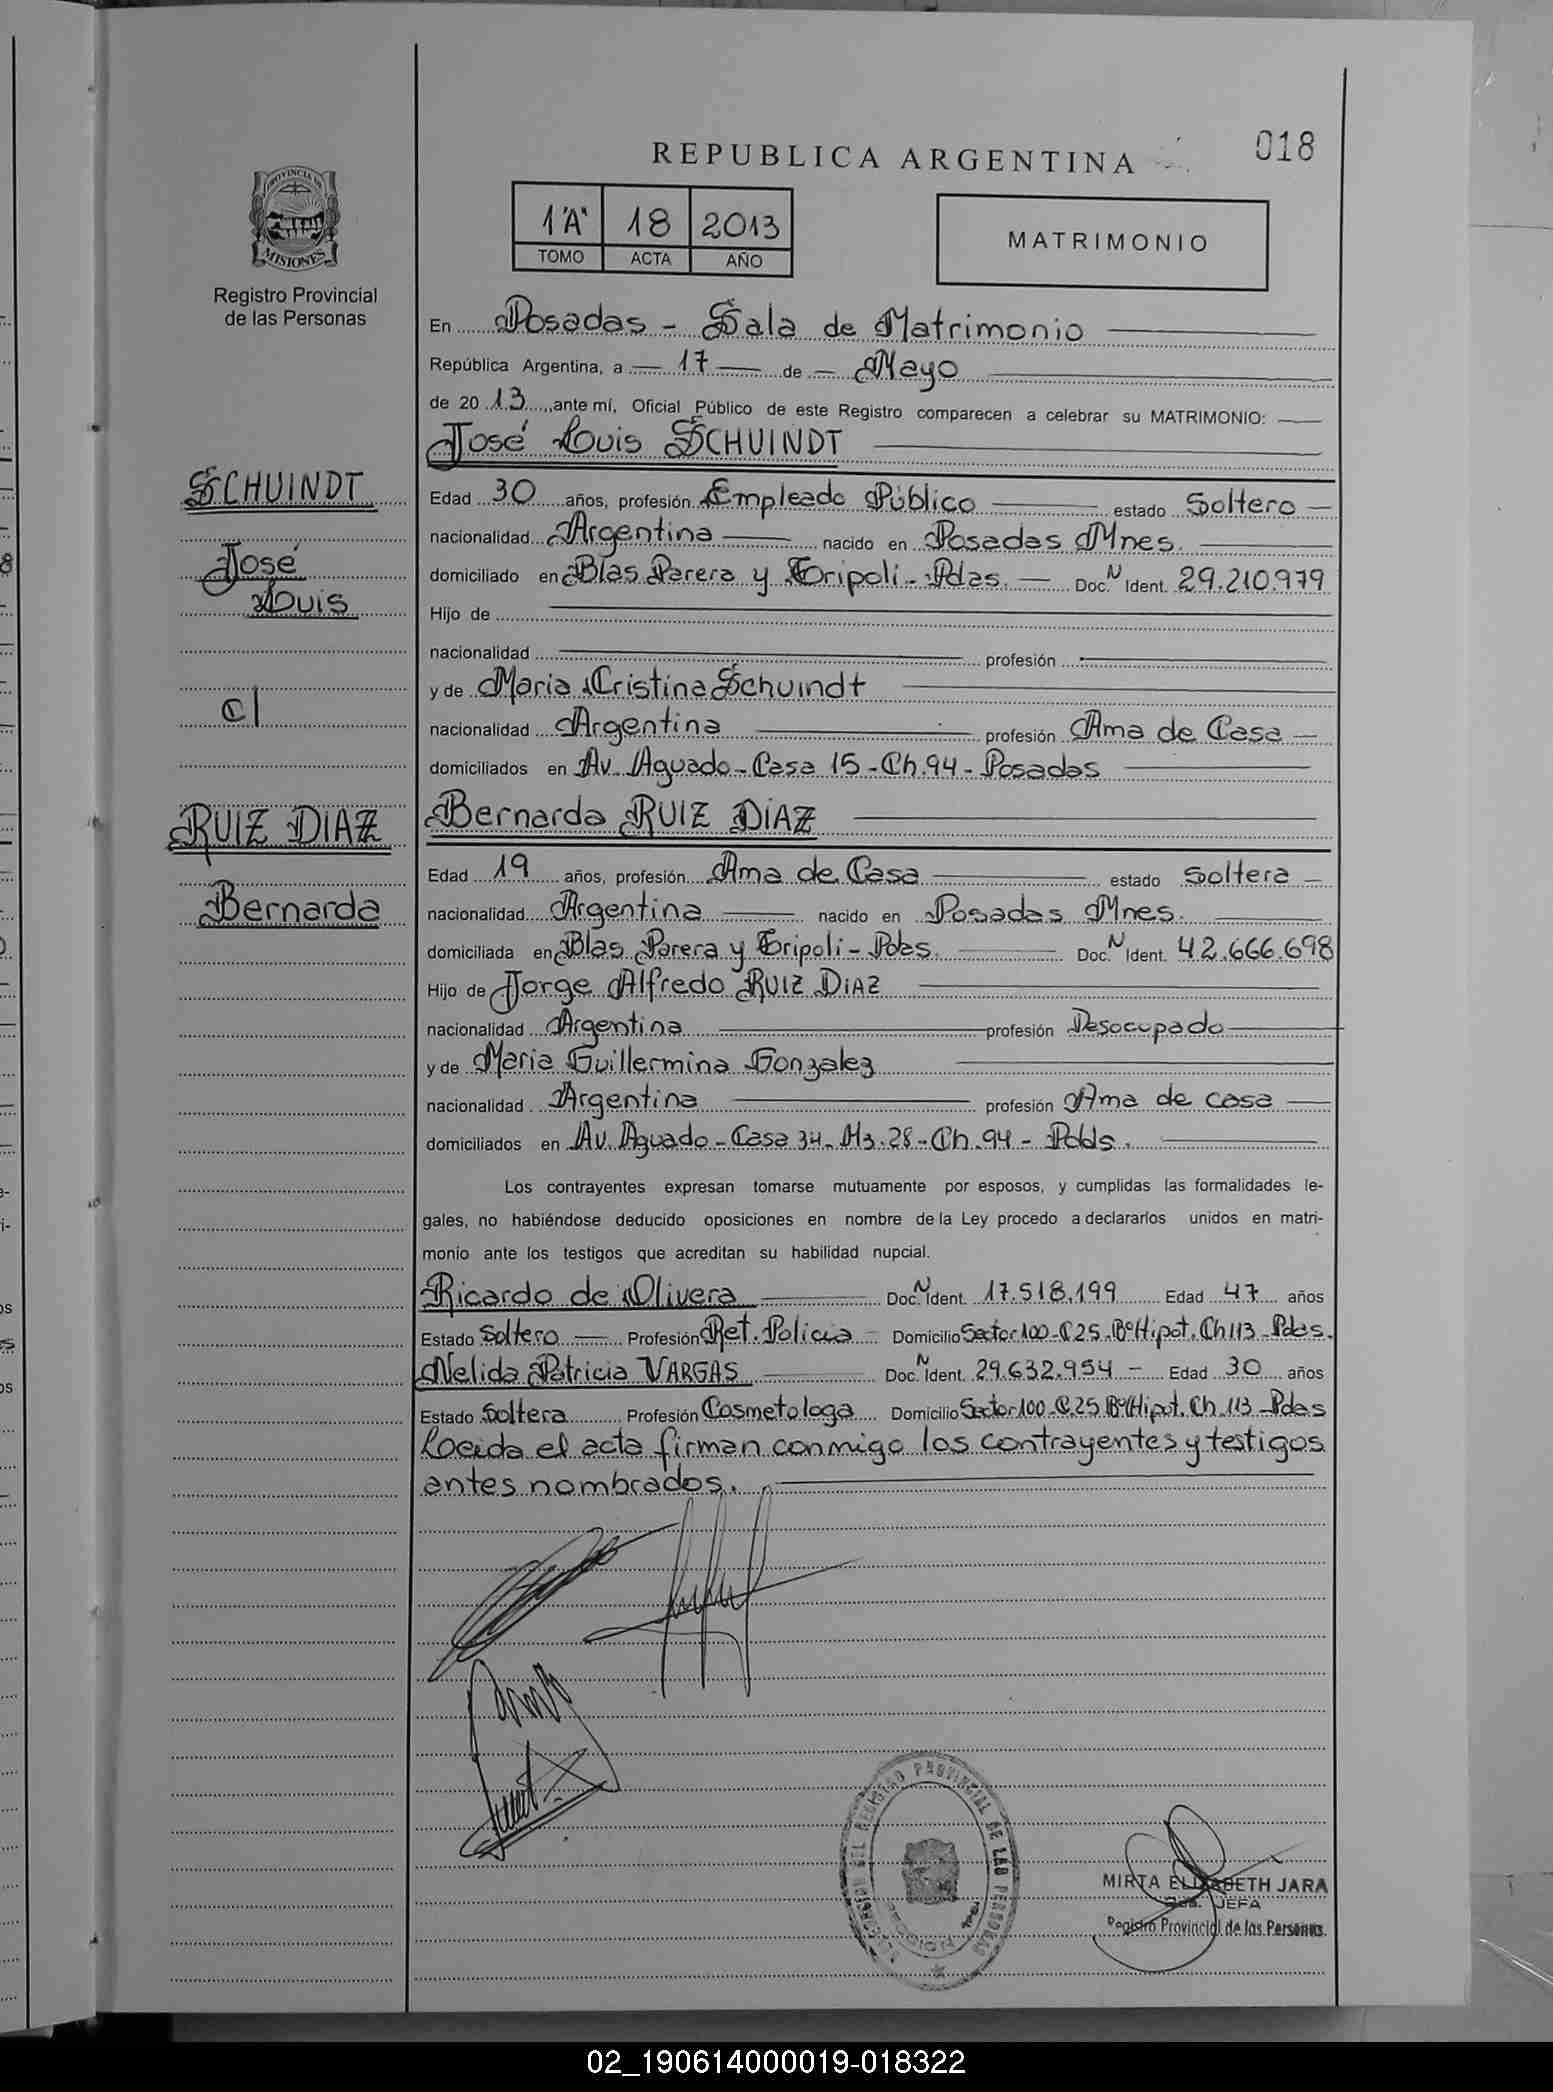 REPUBLICA ARGENTINA
018
PROVINCIA DE
MISIONES
Registro Provincial
de las Personas
1"A" 18 2013
TOMO ACTA AÑO
MATRIMONIO
En Posadas - Sala de Matrimonio
República Argentina, a 17 de Mayo
de 20 13, ante mí, Oficial Público de este Registro comparecen a celebrar su MATRIMONIO:
José Luis SCHUINDT
SCHUINDT
José
Luis
c/
RUIZ DIAZ
Bernarda
Edad 30 años, profesión Empleado Público estado Soltero
nacionalidad Argentina nacido en Posadas Mnes.
domiciliado en Blas Parera y Tripoli - Pdas. Doc. N Ident. 29.210.979
Hijo de
nacionalidad profesión
y de Maria Cristina Schuindt
nacionalidad Argentina profesión Ama de Casa
domiciliados en Av. Aguado - Casa 15 - Ch. 94 - Posadas
Bernarda RUIZ DIAZ
Edad 19 años, profesión Ama de Casa estado Soltera
nacionalidad Argentina nacido en Posadas Mnes.
domiciliada en Blas Parera y Tripoli - Pdas. Doc. N Ident. 42.666.698
Hijo de Jorge Alfredo RUIZ DIAZ
nacionalidad Argentina profesión Desocupado
y de Maria Guillermina Gonzalez
nacionalidad Argentina profesión Ama de casa
domiciliados en Av. Aguado - Casa 34 - Mz. 28 - Ch. 94 - Pdds.
Los contrayentes expresan tomarse mutuamente por esposos, y cumplidas las formalidades le-
gales, no habiéndose deducido oposiciones en nombre de la Ley procedo a declararlos unidos en matri-
monio ante los testigos que acreditan su habilidad nupcial.
Ricardo de Olivera Doc. N Ident. 17.518.199 Edad 47 años
Estado Soltero Profesión Ret. Policia Domicilio Sector 100 - C 25 - Bº Hipot. Ch 113 - Pdas.
Nelida Patricia VARGAS Doc. N Ident. 29.632.954 Edad 30 años
Estado Soltera Profesión Cosmetologa Domicilio Sector 100 - C. 25 Bº Hipot. Ch. 113 - Pdas
Leeida el acta firman conmigo los contrayentes y testigos
antes nombrados.
REGISTRO PROVINCIAL DE LAS PERSONAS
MIRTA ELIZABETH JARA
JEFA
Registro Provincial de las Personas
02_190614000019-018322